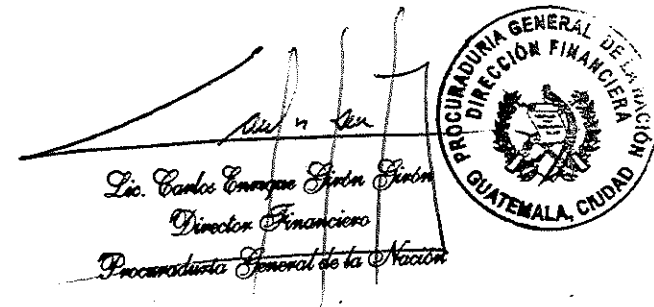 Lic. Carlos Enrique Girón Girón
Director Financiero
Procuraduría General de la Nación
PROCURADURIA GENERAL DE LA NACIÓN
DIRECCIÓN FINANCIERA
GUATEMALA, CIUDAD